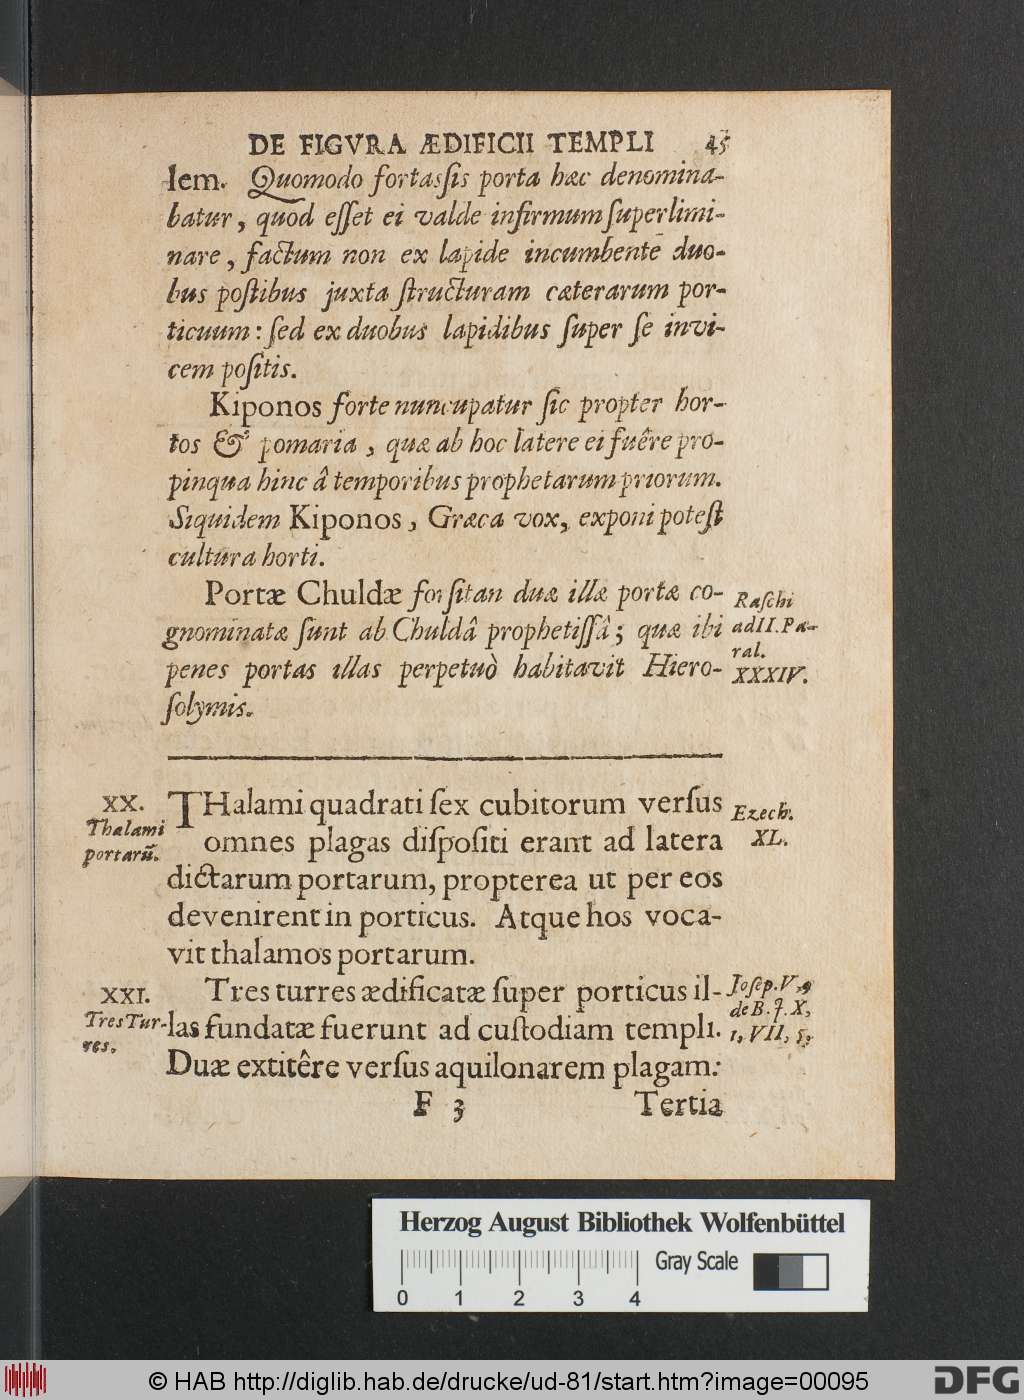 DE FIGVRA ÆDIFICII TEMPLI 45
lem. Quomodo fortasſis porta hæc denomina-
batur, quod eſſet ei valde infirmum ſuperlimi-
nare, factum non ex lapide incumbente duo-
bus poſtibus juxta ſtructuram cæterarum por-
ticuum: ſed ex duobus lapidibus ſuper ſe invi-
cem poſitis.
Kiponos forte nuncupatur ſic propter hor-
tos & pomaria, quæ ab hoc latere ei fuêre pro-
pinqua hinc â temporibus prophetarum priorum.
Siquidem Kiponos, Græca vox, exponi poteſt
cultura horti.
Portæ Chuldæ forſitan duæ illæ portæ co-
gnominatæ ſunt ab Chuldâ prophetiſſâ; quæ ibi
penes portas illas perpetuò habitavit Hiero-
ſolymis.
Raſchi
ad II. Pa-
ral.
XXXIV.
XX.
Thalami
portarũ.
THalami quadrati ſex cubitorum verſus
omnes plagas diſpoſiti erant ad latera
dictarum portarum, propterea ut per eos
devenirent in porticus. Atque hos voca-
vit thalamos portarum.
Ezech.
XL.
XXI.
Tres Tur-
res.
Tres turres ædificatæ ſuper porticus il-
las fundatæ fuerunt ad cuſtodiam templi.
Duæ extitêre verſus aquilonarem plagam:
Joſep. V, 9
de B. J. X,
1, VII, 5,
F 3 Tertia
Herzog August Bibliothek Wolfenbüttel
Gray Scale
0 1 2 3 4
© HAB http://diglib.hab.de/drucke/ud-81/start.htm?image=00095
DFG